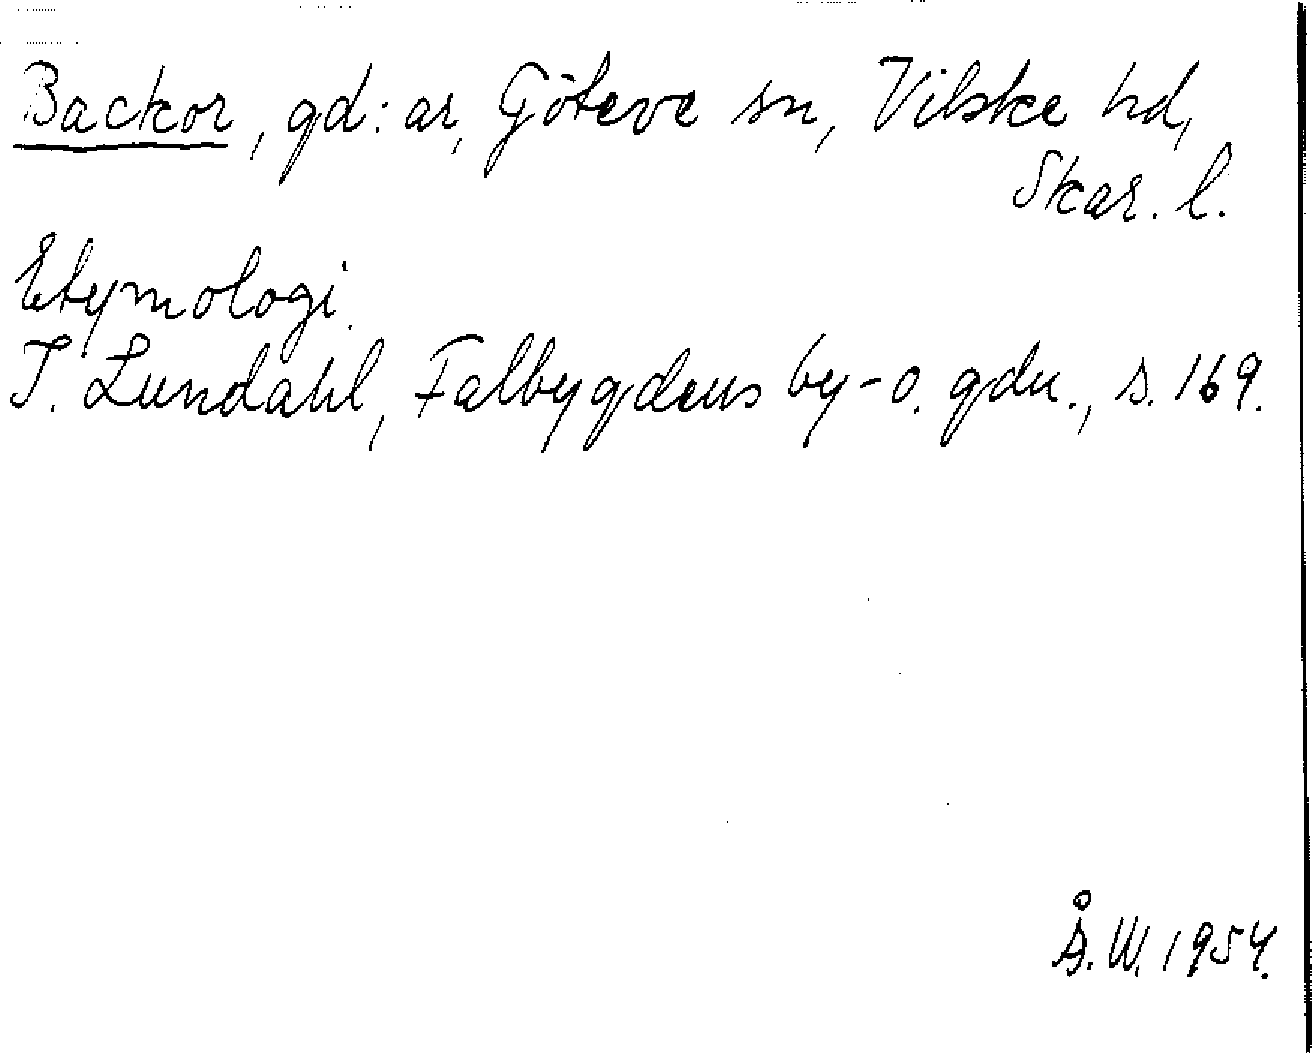 Backor, gd:ar, Göteve sn, Vilske hd,
Skar. l.
Etymologi.
I. Lundahl, Falbygdens by- o. gdn., s. 169.
Å.W. 1954.